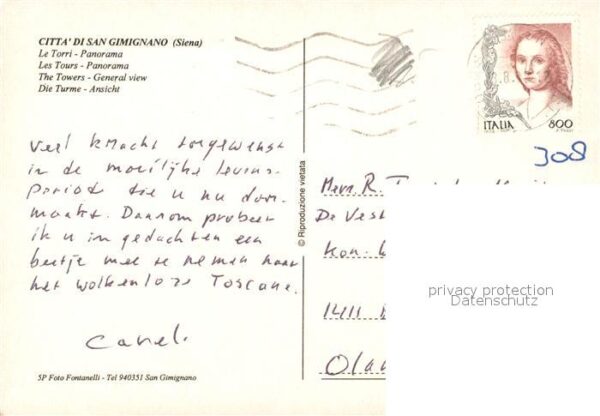 CITTA' DI SAN GIMIGNANO (Siena)
Le Torri - Panorama
Les Tours - Panorama
The Towers - General view
Die Turme - Ansicht
Veel kracht toegewenst
in de moeilijke levens-
periode die u nu door-
maakt. Daarom probeer
ik u in gedachten een
beetje mee te nemen naar
het wolkenloze Toscane.
Carel.
5P Foto Fontanelli - Tel 940351 San Gimignano
© Riproduzione vietata
ITALIA 800
308
Mevr. R.
De Vest
Kon.
1411
Ola
privacy protection
Datenschutz